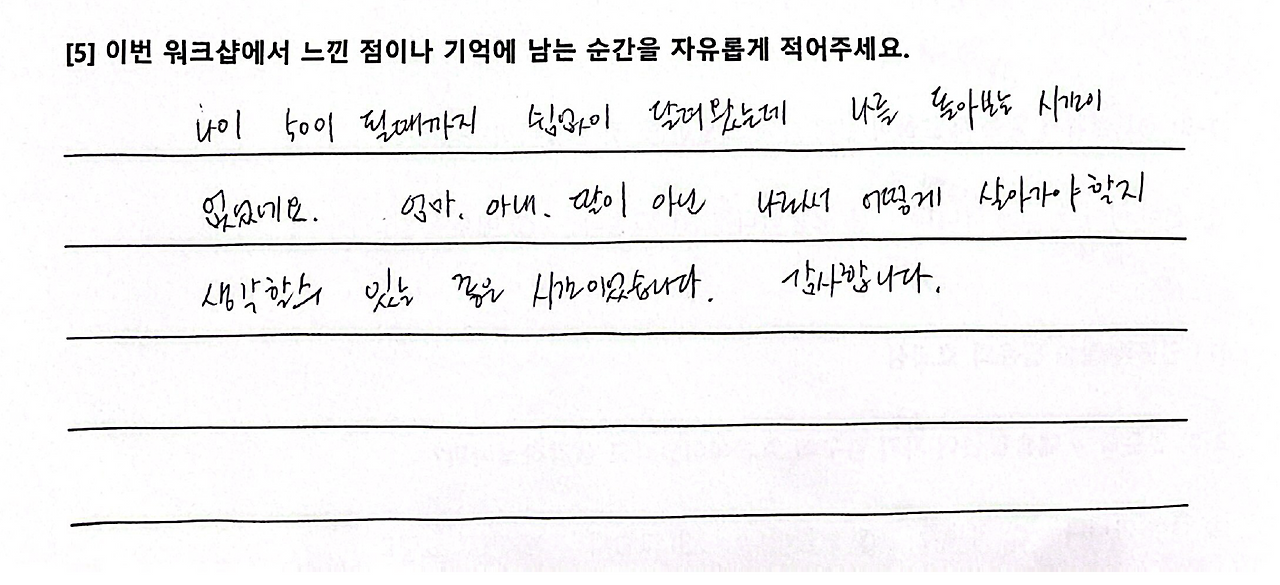 [5] 이번 워크샵에서 느낀 점이나 기억에 남는 순간을 자유롭게 적어주세요.
나이 50이 될때까지 쉼없이 달려왔는데 나를 돌아보는 시간이
없었네요. 엄마, 아내, 딸이 아닌 나라서 어떻게 살아가야 할지
생각할수 있는 좋은 시간이었습니다. 감사합니다.